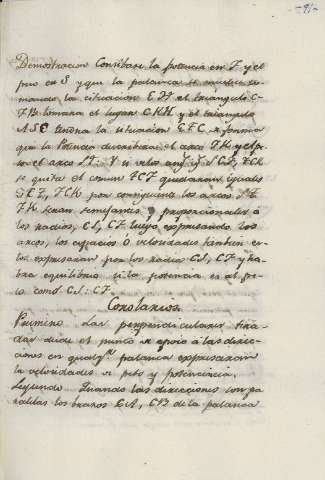 -91-
Demostracion Concibase la potencia en F y el
peso en S y que la palanca se mueve to-
mando la situacion E D el triangulo C-
F B tomara el lugar C K H y el triangulo
A S C tendra la situacion E C de forma
que la Potencia describira el arco F K y el pe-
so el arco y si á los
se quita el comun F C E quedaran iguales
S C I, F C K por consiguiente los arcos S I
F K seran semejantes y proporcionales á
los radios, C S, C F luego expresando los
arcos, los espacios ó velocidades tambien es-
tos expresaran por los radios C S, C F y ha-
bra equilibrio si la potencia es al pe-
so como C S : C F.
Corolarios
Primero. Las perpendiculares tira-
das desde el punto de apoyo á las direc-
ciones en qualqr. palanca expresaran
la velocidades de peso y potencia.
Segundo. Quando las direcciones son pa-
ralelas los brazos C A, C B de la palanca